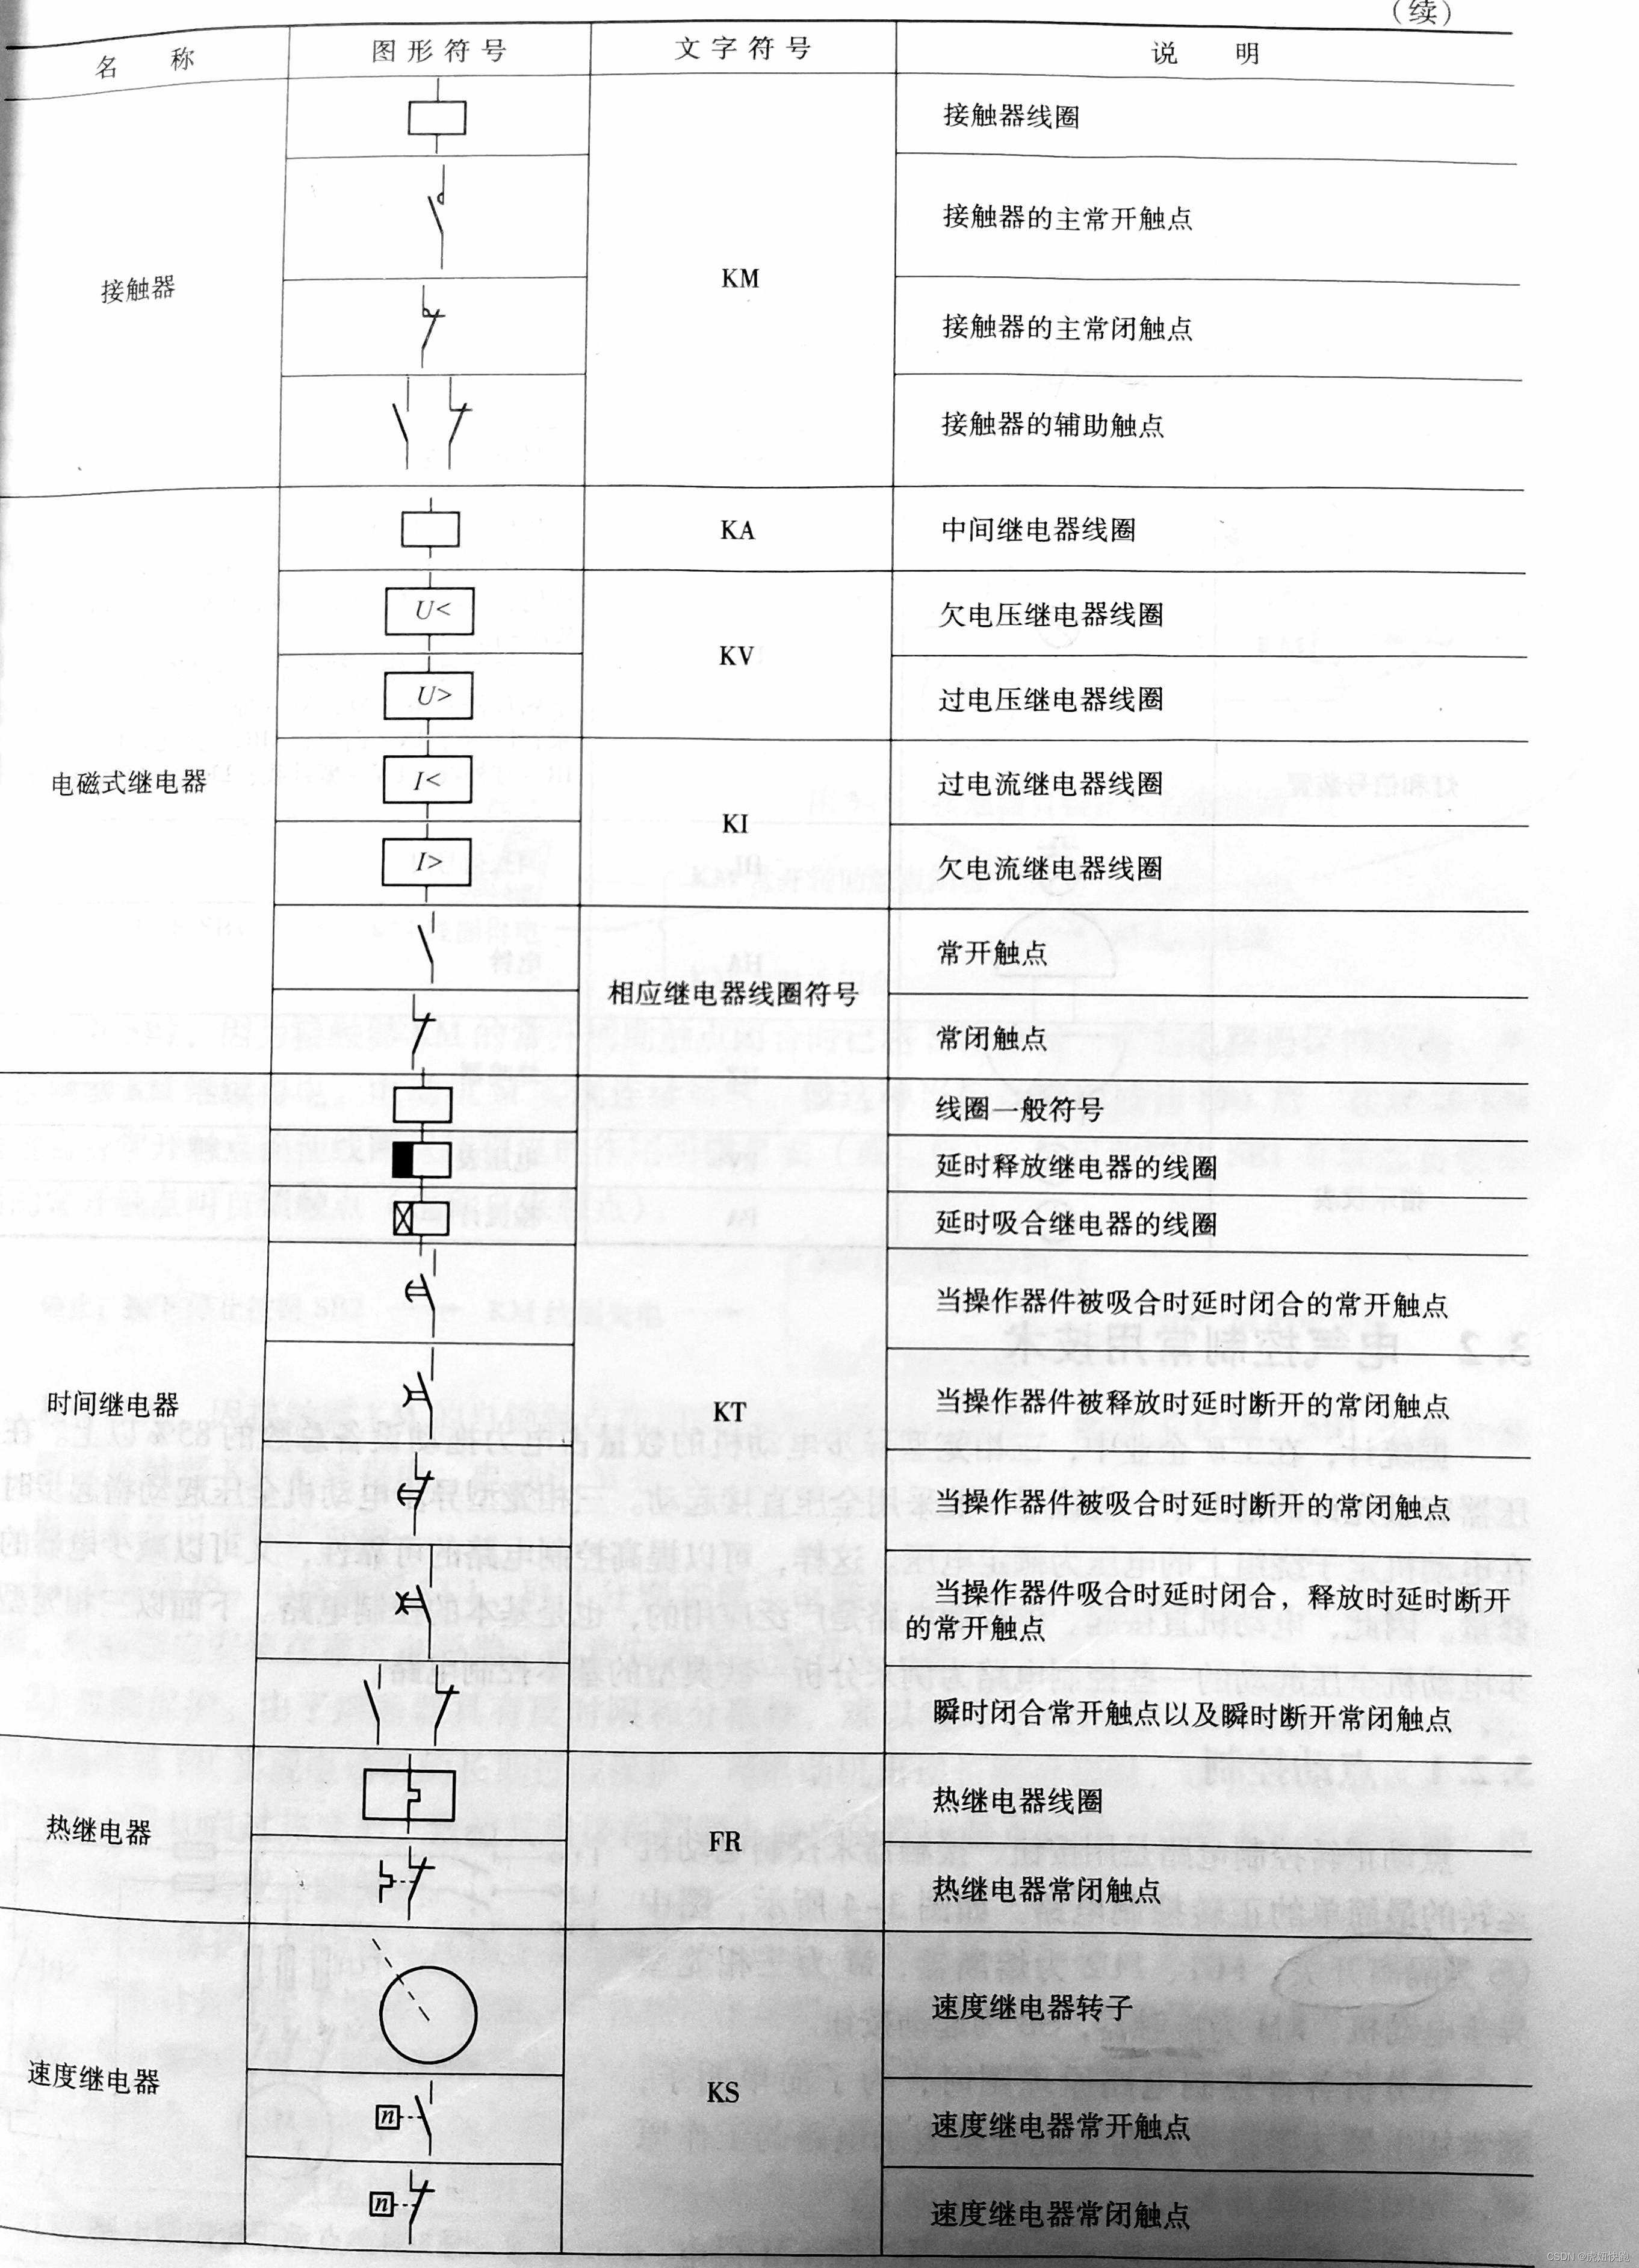 （续）
名 称 图形符号 文字符号 说 明
接触器 KM
接触器线圈
接触器的主常开触点
接触器的主常闭触点
接触器的辅助触点
电磁式继电器
KA 中间继电器线圈
U< KV 欠电压继电器线圈
U> 过电压继电器线圈
I< KI 过电流继电器线圈
I> 欠电流继电器线圈
相应继电器线圈符号
常开触点
常闭触点
时间继电器 KT
线圈一般符号
延时释放继电器的线圈
延时吸合继电器的线圈
当操作器件被吸合时延时闭合的常开触点
当操作器件被释放时延时断开的常闭触点
当操作器件被吸合时延时断开的常闭触点
当操作器件吸合时延时闭合，释放时延时断开
的常开触点
瞬时闭合常开触点以及瞬时断开常闭触点
热继电器 FR
热继电器线圈
热继电器常闭触点
速度继电器 KS
速度继电器转子
n 速度继电器常开触点
n 速度继电器常闭触点
CSDN @虎妞快跑